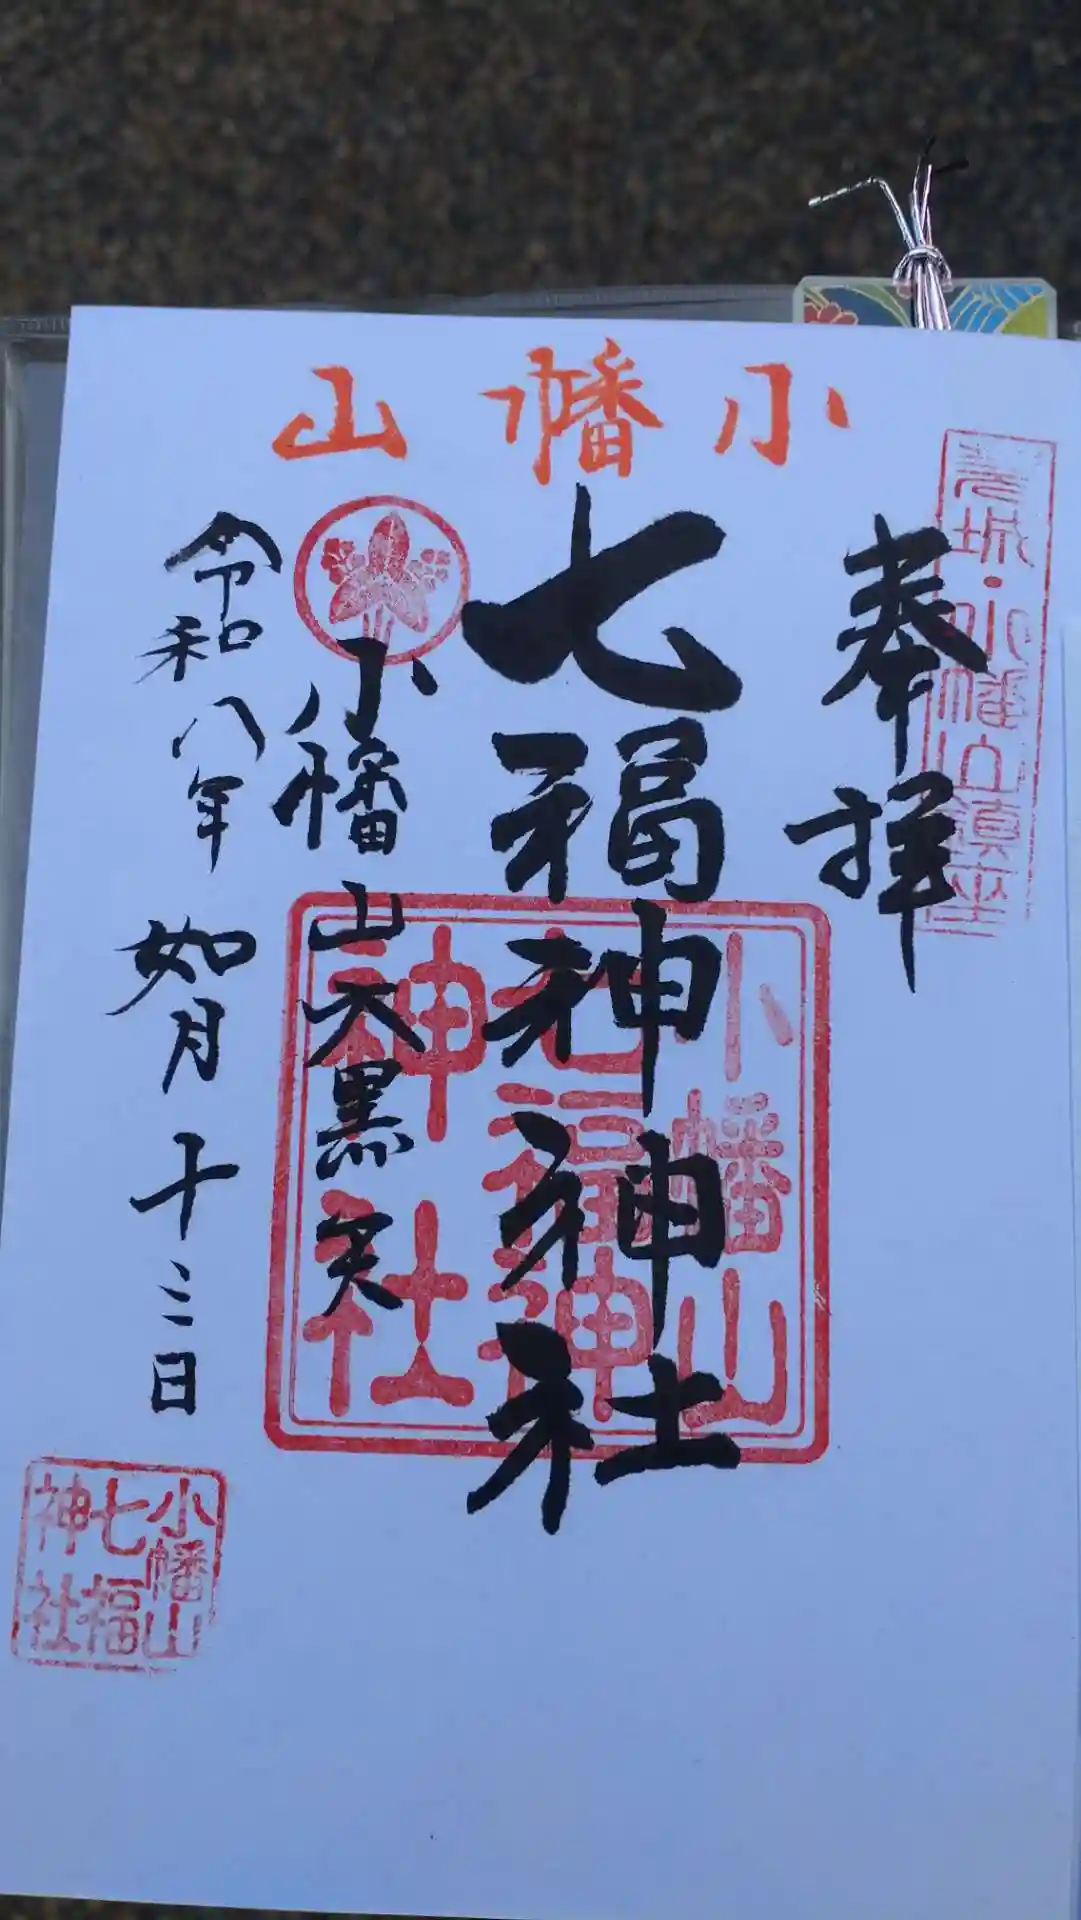 小幡山
茨城・小幡山鎮座
奉拝
七福神神社
小幡山大黒天
令和八年 如月 十三日
小幡山
七福神
神社
小幡山
七福
神社